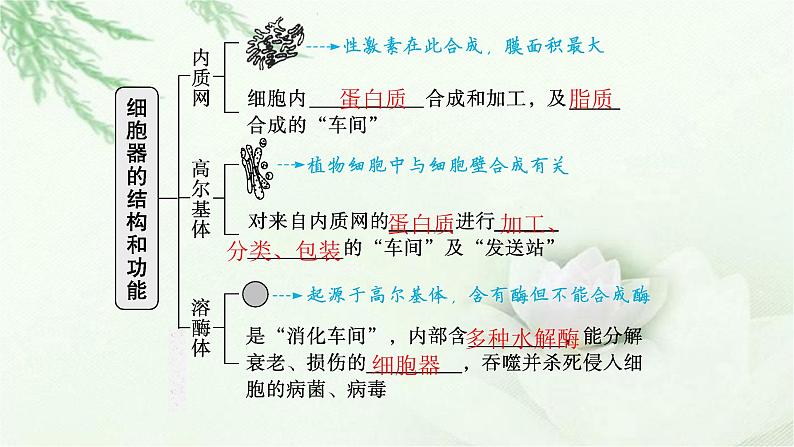 细胞器的结构和功能
内质网
性激素在此合成，膜面积最大
细胞内蛋白质合成和加工，及脂质
合成的“车间”
高尔基体
植物细胞中与细胞壁合成有关
对来自内质网的蛋白质进行加工、
分类、包装的“车间”及“发送站”
溶酶体
起源于高尔基体，含有酶但不能合成酶
是“消化车间”，内部含多种水解酶能分解
衰老、损伤的细胞器，吞噬并杀死侵入细
胞的病菌、病毒